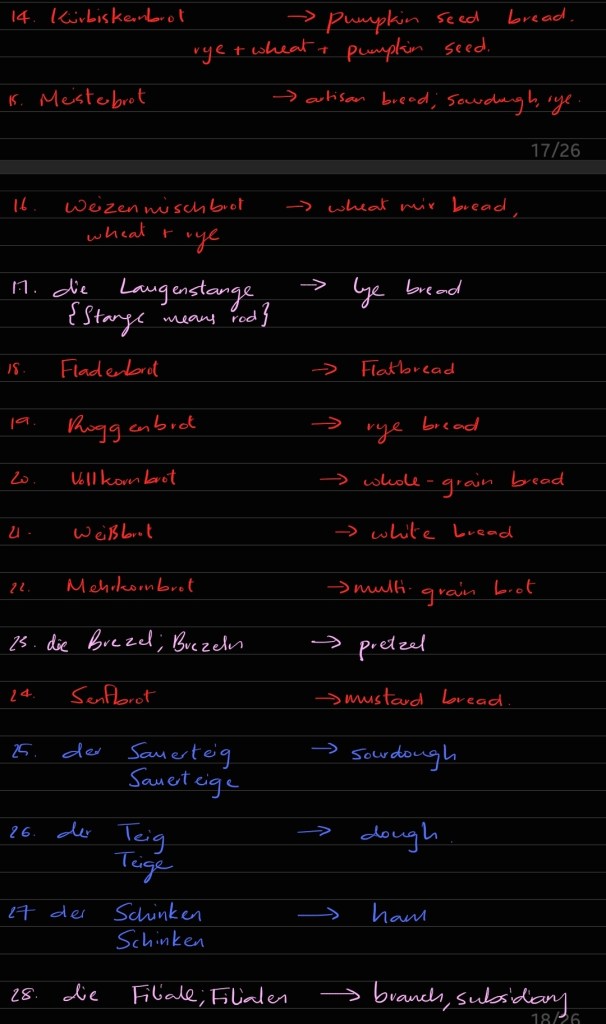 14. Kürbiskernbrot → pumpkin seed bread.
rye + wheat + pumpkin seed.
15. Meisterbrot → artisan bread; sourdough, rye.
17/26
16. Weizenmischbrot → wheat mix bread,
wheat + rye
17. die Laugenstange → lye bread
{Stange means rod}
18. Fladenbrot → Flatbread
19. Roggenbrot → rye bread
20. Vollkornbrot → whole-grain bread
21. Weißbrot → white bread
22. Mehrkornbrot → multi-grain brot
23. die Brezel; Brezeln → pretzel
24. Senfbrot → mustard bread.
25. der Sauerteig → sourdough
Sauerteige
26. der Teig → dough.
Teige
27 der Schinken → ham
Schinken
28. die Filiale; Filialen → branch, subsidiary
18/26